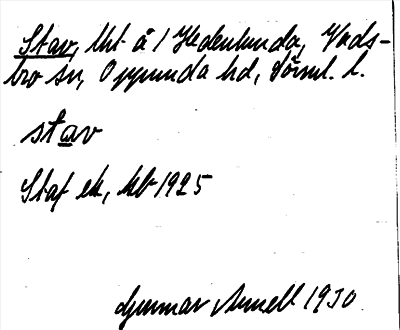 Stav, lht å 1 Hedenlunda, Vads-
bro sn, Oppunda hd, Sörml. l.
stav
Staf ek, kbt 1925
Gunnar Arnell 1930